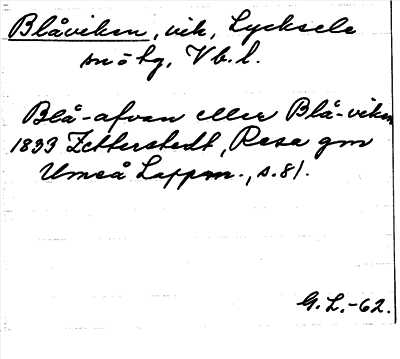 Blåviken, vik, Lycksele
snöhg, Vb. l.
Blå-afvan eller Blå-viken
1833 Zetterstedt, Resa gm
Umeå Lappm., s. 81.
G. L.-62.